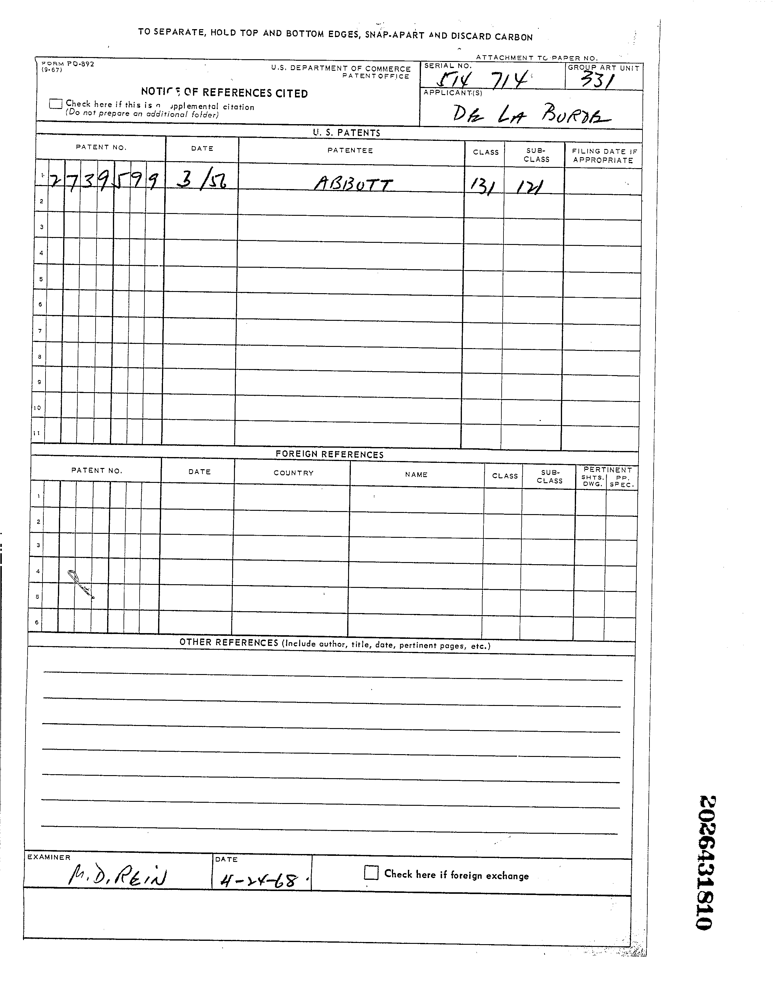 TO SEPARATE, HOLD TOP AND BOTTOM EDGES, SNAP-APART AND DISCARD CARBON
ATTACHMENT TO PAPER NO.
FORM PO-892
(9-67)
U.S. DEPARTMENT OF COMMERCE
PATENT OFFICE
SERIAL NO.
514 714
GROUP ART UNIT
331
NOTICE OF REFERENCES CITED
Check here if this is a supplemental citation
(Do not prepare an additional folder)
APPLICANT(S)
DE LA BURDE
U. S. PATENTS
PATENT NO. DATE PATENTEE CLASS SUB-CLASS FILING DATE IF APPROPRIATE
1 2739599 3/56 ABBOTT 131 121
2
3
4
5
6
7
8
9
10
11
FOREIGN REFERENCES
PATENT NO. DATE COUNTRY NAME CLASS SUB-CLASS PERTINENT SHTS. DWG. PP. SPEC.
1
2
3
4
5
6
OTHER REFERENCES (Include author, title, date, pertinent pages, etc.)
EXAMINER
M. D. REIN
DATE
4-24-68
Check here if foreign exchange
2026431810